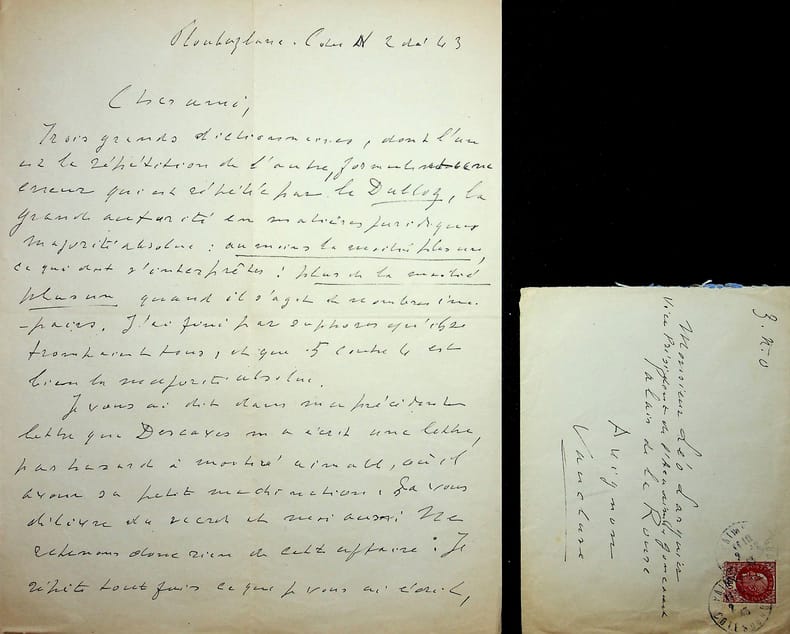 Ploubazlanec. Côtes du N 2 déc 43
Cher ami,
Trois grands dictionnaires, dont l'un
est la répétition de l'autre, formulent une
erreur qui est répétée par le Dalloz, la
grande autorité en matières juridiques
majorité absolue : au moins la moitié plus un,
ce qui doit s'interpréter : plus de la moitié
plus un quand il s'agit de nombres im-
-pairs. J'ai fini par supposer qu'ils se
trompaient tous, et que 5 contre 4 est
bien la majorité absolue.
Je vous ai dit dans ma précédente
lettre que Descaves m'a écrit une lettre,
pas hasard à moitié aimable, où il
avoue sa petite machination. Ça vous
délivre du secret et moi aussi. Ne
retenons donc rien de cette affaire : Je
répète toutefois ce que je vous ai écrit,
Monsieur Léo Larguier
Vice Président de l'Académie Goncourt
Palais de la Roure
Avignon
Vaucluse